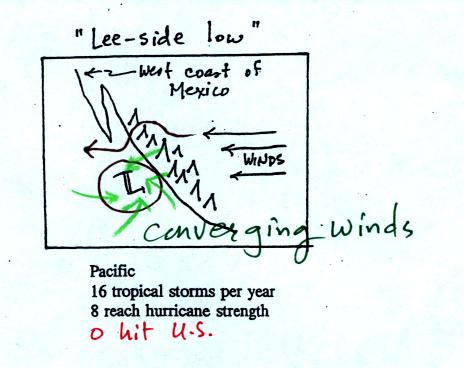 "Lee-side low"
west coast of
Mexico
WINDS
L
converging winds
Pacific
16 tropical storms per year
8 reach hurricane strength
0 hit U.S.